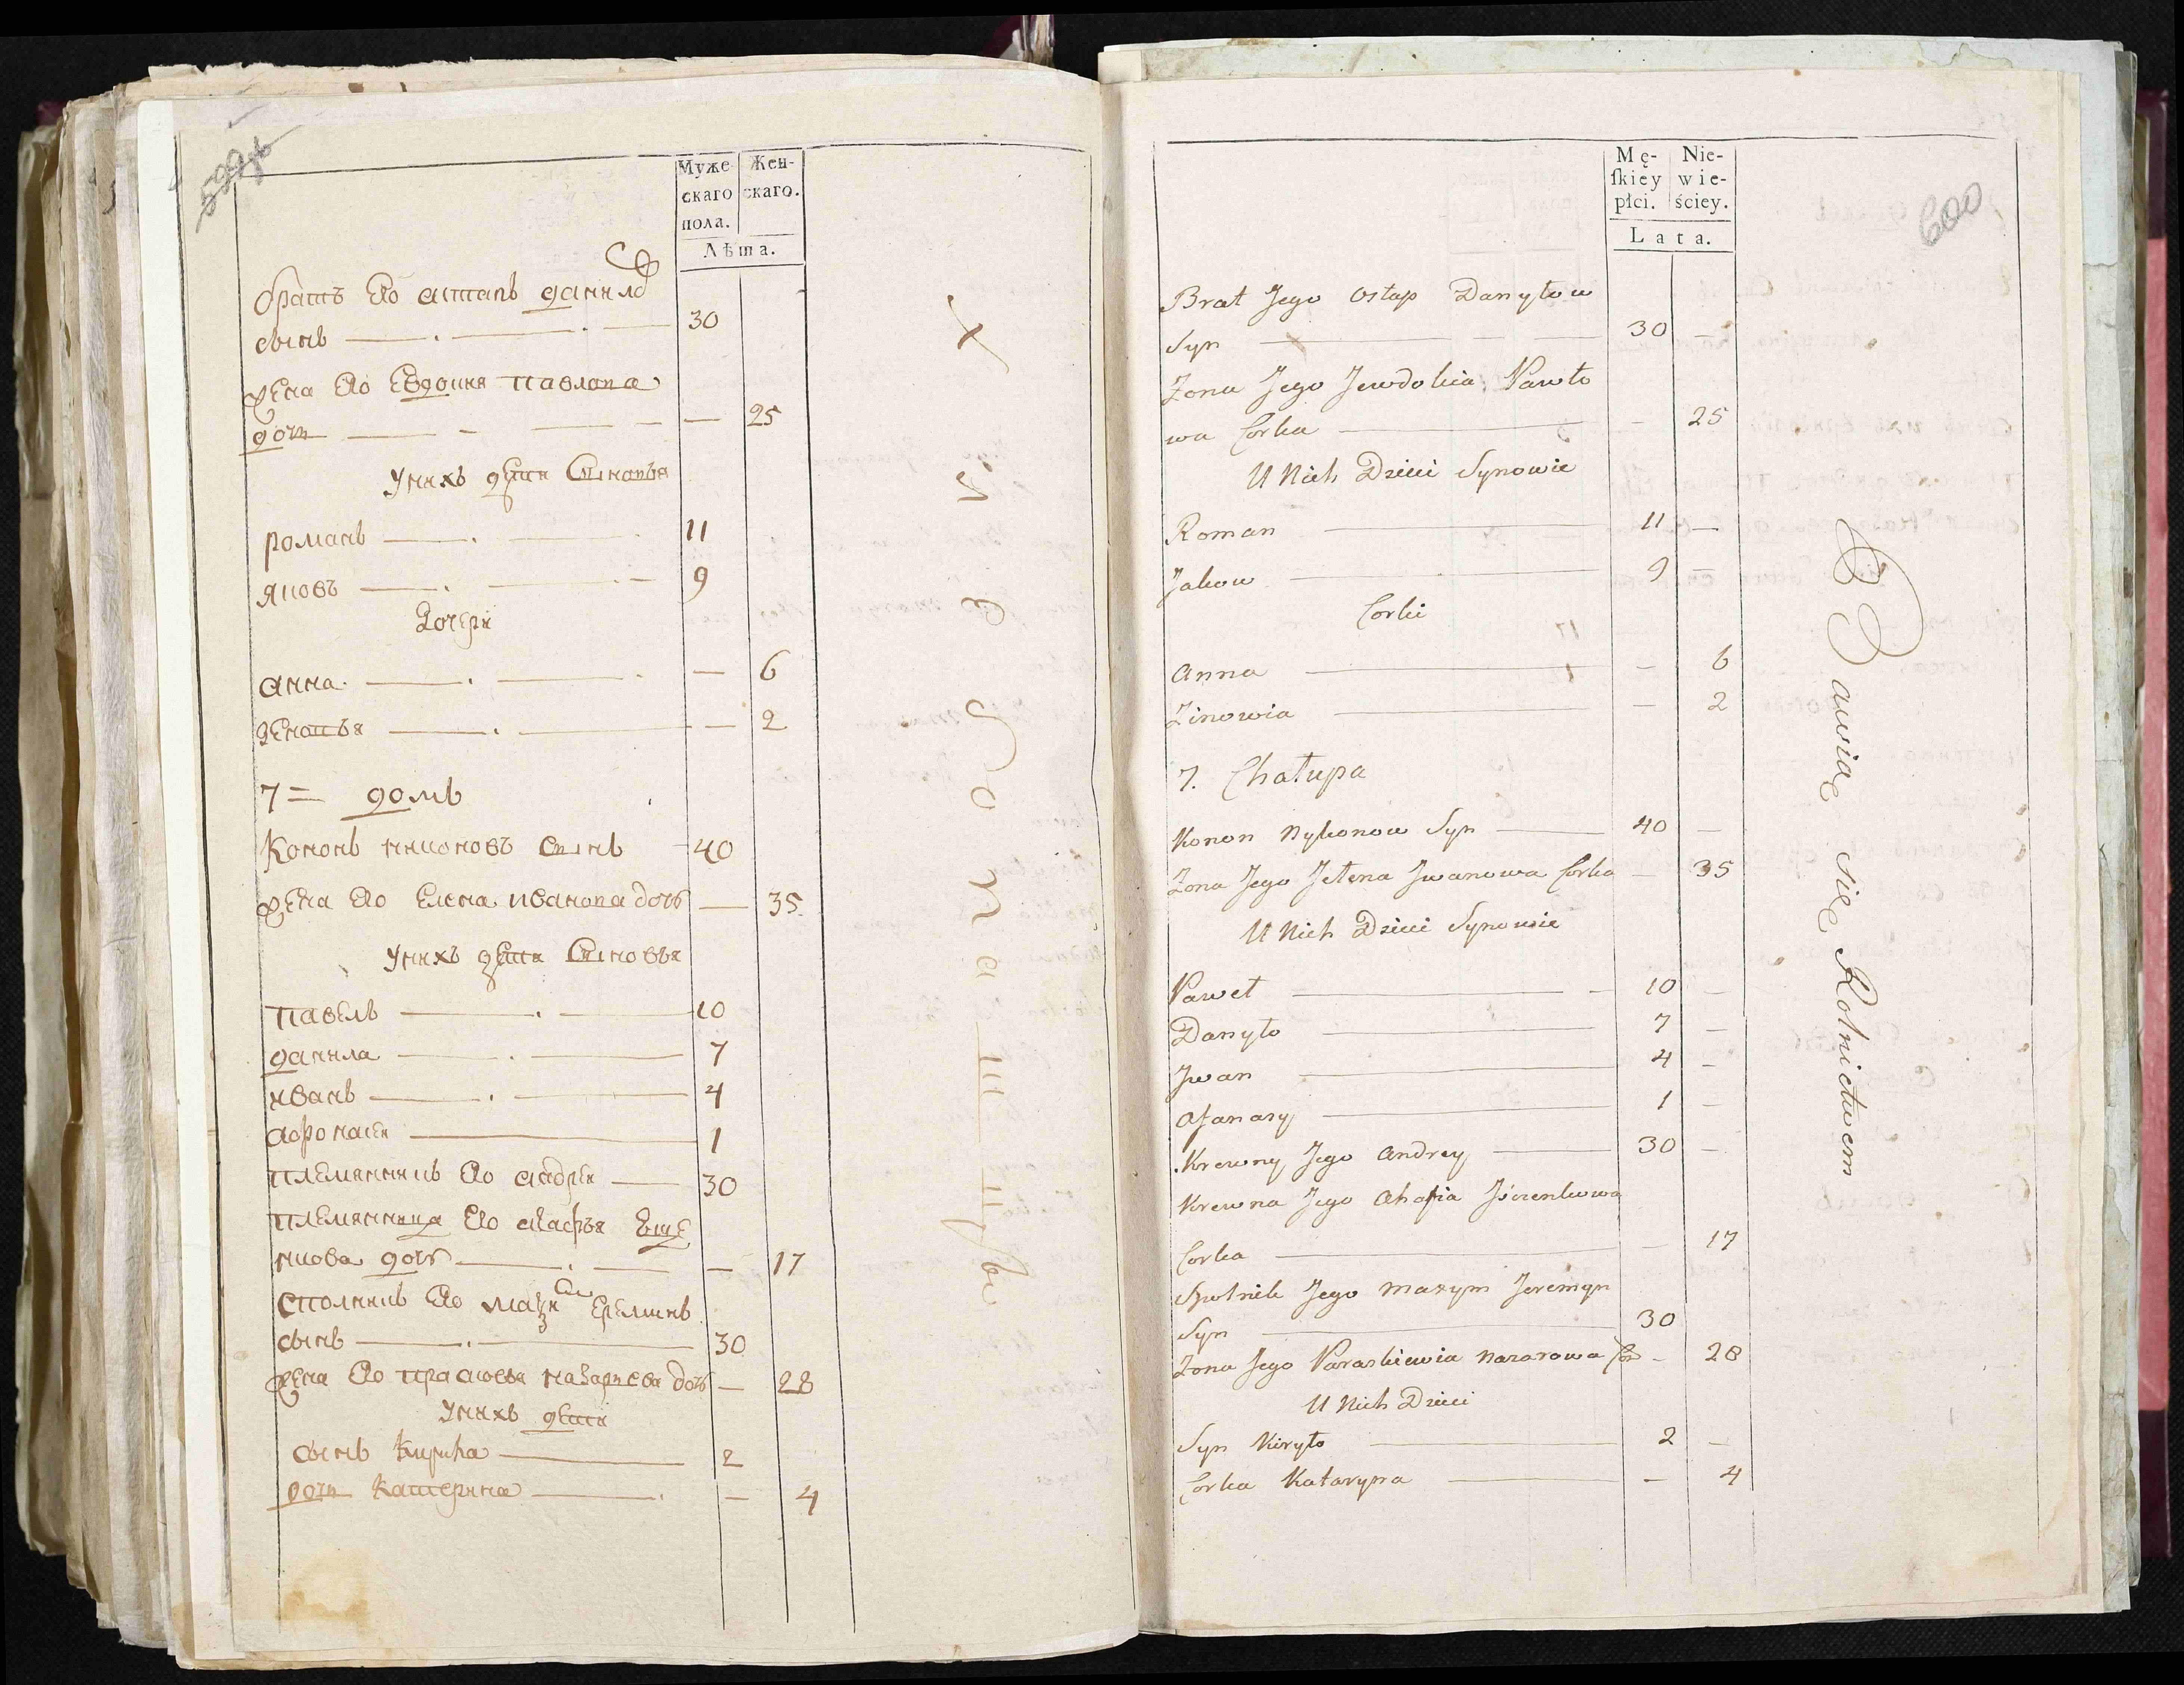 599 об
Муже-
скаго
пола.
Жен-
скаго.
Лѣта.
братъ Его астапъ данило
въ
сынъ 30
жена Его Евдокия павлова
дочь — 25
у нихъ дети Сыновья
романъ 11
яковъ 9
Дочери
анна — 6
зеновья — 2
7 = домъ
Кононъ никоновъ Сынъ 40
жена Его Елена иванова дочь — 35
у нихъ дети Сыновья
павелъ 10
данила 7
иванъ 4
афонасей 1
племянникъ Его андрей 30
племянница Его агафья Еще
никова дочь — 17
Сполникъ Его мази Ереминъ
сынъ 30
жена Его прасковья назарьева дочь — 28
у нихъ дети
сынъ кирила 2
дочь катерина — 4
Хлебопашцы
600
Mę-
ſkiey
płci.
Nie-
wie-
ściey.
Lata.
Brat Jego Ostap Danyłow
Syn 30 —
Zona Jego Jewdokia Pawło
wa Corka — 25
U Nich Dzieci Synowie
Roman 11 —
Jakow 9 —
Corki
Anna — 6
Zinowia — 2
7. Chałupa
Konon Nykonow Syn 40 —
Zona Jego Jełena Jwanowa Corka — 35
U Nich Dzieci Synowie
Paweł 10 —
Danyło 7 —
Jwan 4 —
Afanasy 1 —
Krewny Jego Andrey 30 —
Krewna Jego Ahafia Jszczenkowa
Corka — 17
Spolnik Jego Maxym Jeremyn
Syn 30
Zona Jego Paraskiewia Nazarowa Cor — 28
U Nich Dzieci
Syn Kiryło 2 —
Corka Kataryna — 4
Bawiąc się Rolnictwem